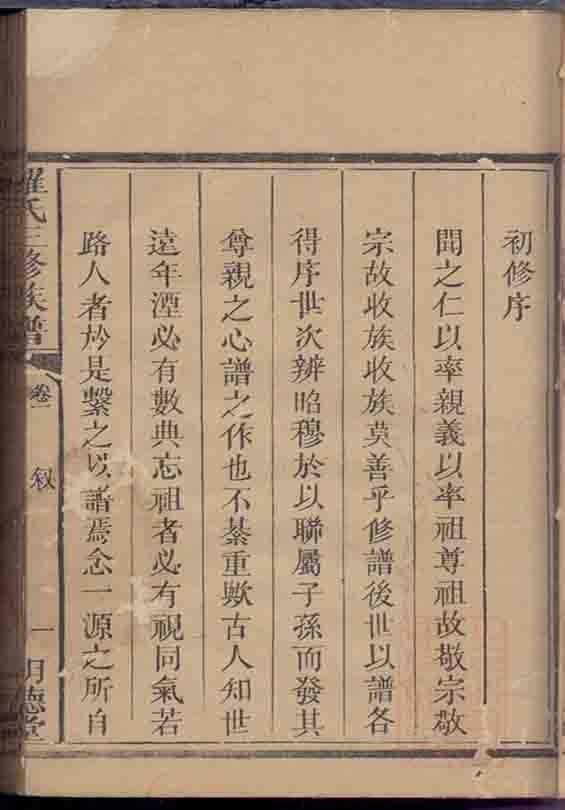 初修序
聞之仁以率親義以率祖尊祖故敬宗敬
宗故收族收族莫善乎修譜後世以譜各
得序世次辨昭穆於以聯屬子孫而發其
尊親之心譜之作也不綦重歟古人知世
遠年湮必有數典忘祖者必有視同氣若
路人者於是繫之以譜焉念一源之所自
羅氏三修族譜
卷一
敘
一
明德堂